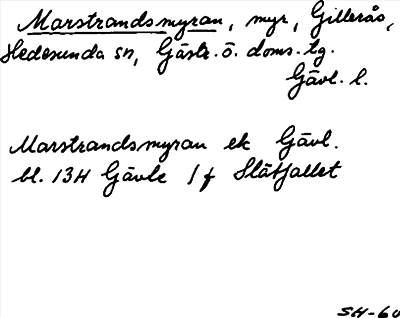 Marstrandsmyran, myr, Gillerås,
Hedesunda sn, Gästr. ö. doms. tg.
Gävl. l.
Marstrandsmyran ek Gävl.
bl. 13H Gävle 1 f Slåtfallet
SH-60